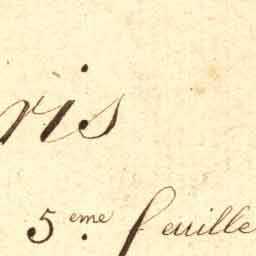 ris
5.eme feuille